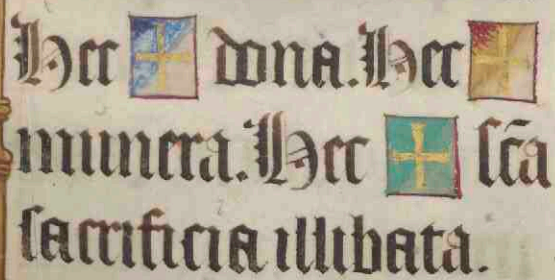 Hec ✠ dona. Hec ✠
munera. Hec ✠ sc̄a
sacrificia illibata.